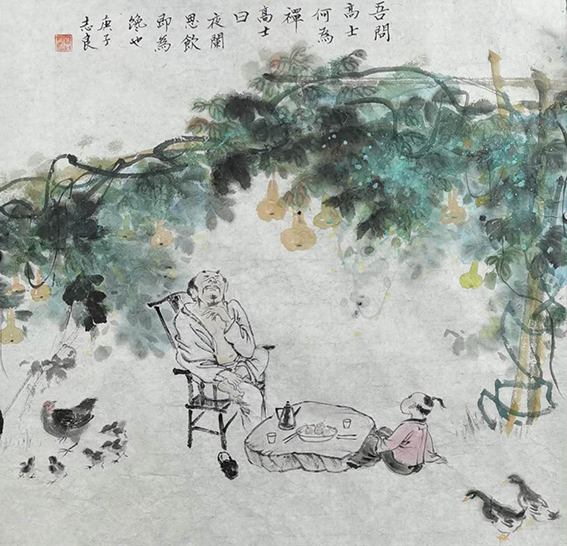 吾問
高士
何為
禪
高士
曰
夜闌
思飲
即為
饞也
庚子
志良